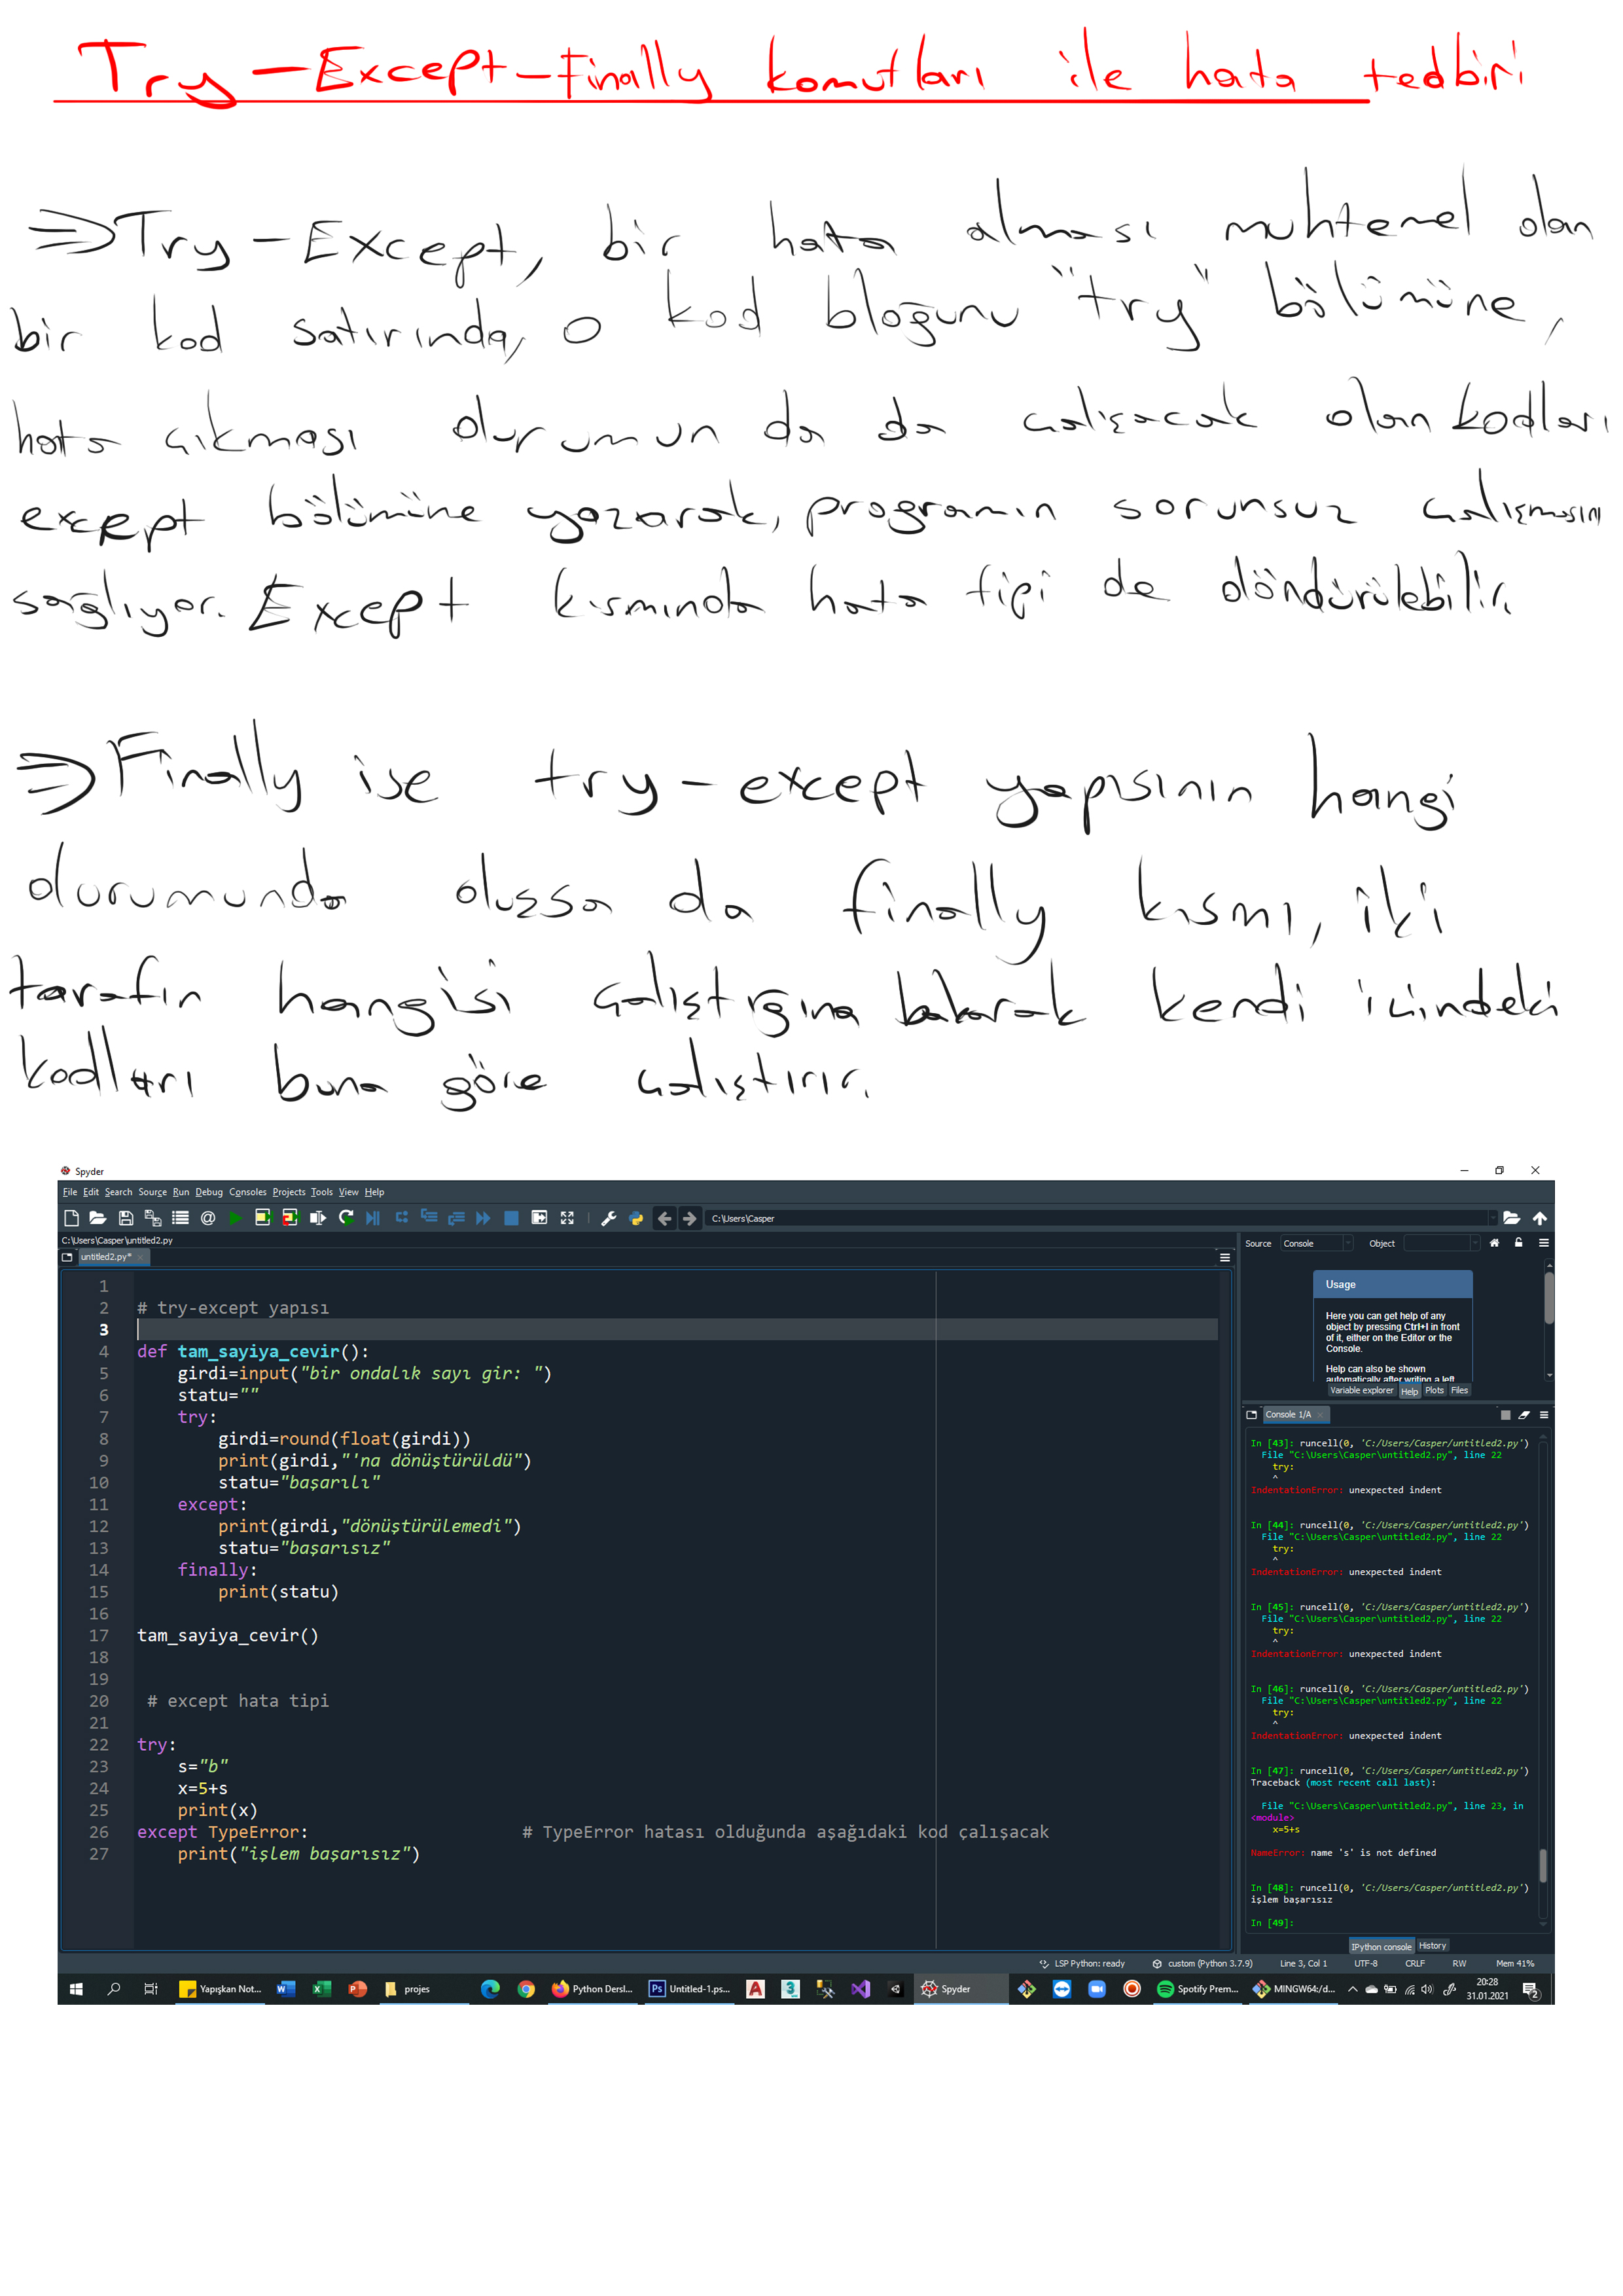 Try-Except-Finally komutları ile hata tedbiri
⇒Try-Except, bir hata alması muhtemel olan
bir kod satırında, o kod bloğunu "try" bölümüne,
hata çıkması durumunda da çalışacak olan kodları
except bölümüne yazarak, programın sorunsuz çalışmasını
sağlıyor. Except kısmında hata tipi de döndürülebilir.
⇒Finally ise try-except yapısının hangi
durumunda oluşsa da finally kısmı, iki
tarafın hangisi çalıştığına bakarak kendi içindeki
kodları buna göre çalıştırır.
Spyder
File Edit Search Source Run Debug Consoles Projects Tools View Help
C:\Users\Casper
C:\Users\Casper\untitled2.py
untitled2.py*
1
2 # try-except yapısı
3
4 def tam_sayiya_cevir():
5 girdi=input("bir ondalık sayı gir: ")
6 statu=""
7 try:
8 girdi=round(float(girdi))
9 print(girdi,"'na dönüştürüldü")
10 statu="başarılı"
11 except:
12 print(girdi,"dönüştürülemedi")
13 statu="başarısız"
14 finally:
15 print(statu)
16
17 tam_sayiya_cevir()
18
19
20 # except hata tipi
21
22 try:
23 s="b"
24 x=5+s
25 print(x)
26 except TypeError: # TypeError hatası olduğunda aşağıdaki kod çalışacak
27 print("işlem başarısız")
Source Console Object
Usage
Here you can get help of any
object by pressing Ctrl+I in front
of it, either on the Editor or the
Console.
Help can also be shown
automatically after writing a left
Variable explorer Help Plots Files
Console 1/A
In [43]: runcell(0, 'C:/Users/Casper/untitled2.py')
File "C:\Users\Casper\untitled2.py", line 22
try:
^
IndentationError: unexpected indent
In [44]: runcell(0, 'C:/Users/Casper/untitled2.py')
File "C:\Users\Casper\untitled2.py", line 22
try:
^
IndentationError: unexpected indent
In [45]: runcell(0, 'C:/Users/Casper/untitled2.py')
File "C:\Users\Casper\untitled2.py", line 22
try:
^
IndentationError: unexpected indent
In [46]: runcell(0, 'C:/Users/Casper/untitled2.py')
File "C:\Users\Casper\untitled2.py", line 22
try:
^
IndentationError: unexpected indent
In [47]: runcell(0, 'C:/Users/Casper/untitled2.py')
Traceback (most recent call last):
File "C:\Users\Casper\untitled2.py", line 23, in
<module>
x=5+s
NameError: name 's' is not defined
In [48]: runcell(0, 'C:/Users/Casper/untitled2.py')
işlem başarısız
In [49]:
IPython console History
LSP Python: ready custom (Python 3.7.9) Line 3, Col 1 UTF-8 CRLF RW Mem 41%
Yapışkan Not... projes Python Dersl... Untitled-1.ps... Spyder Spotify Prem... MINGW64:/d... 20:28
31.01.2021